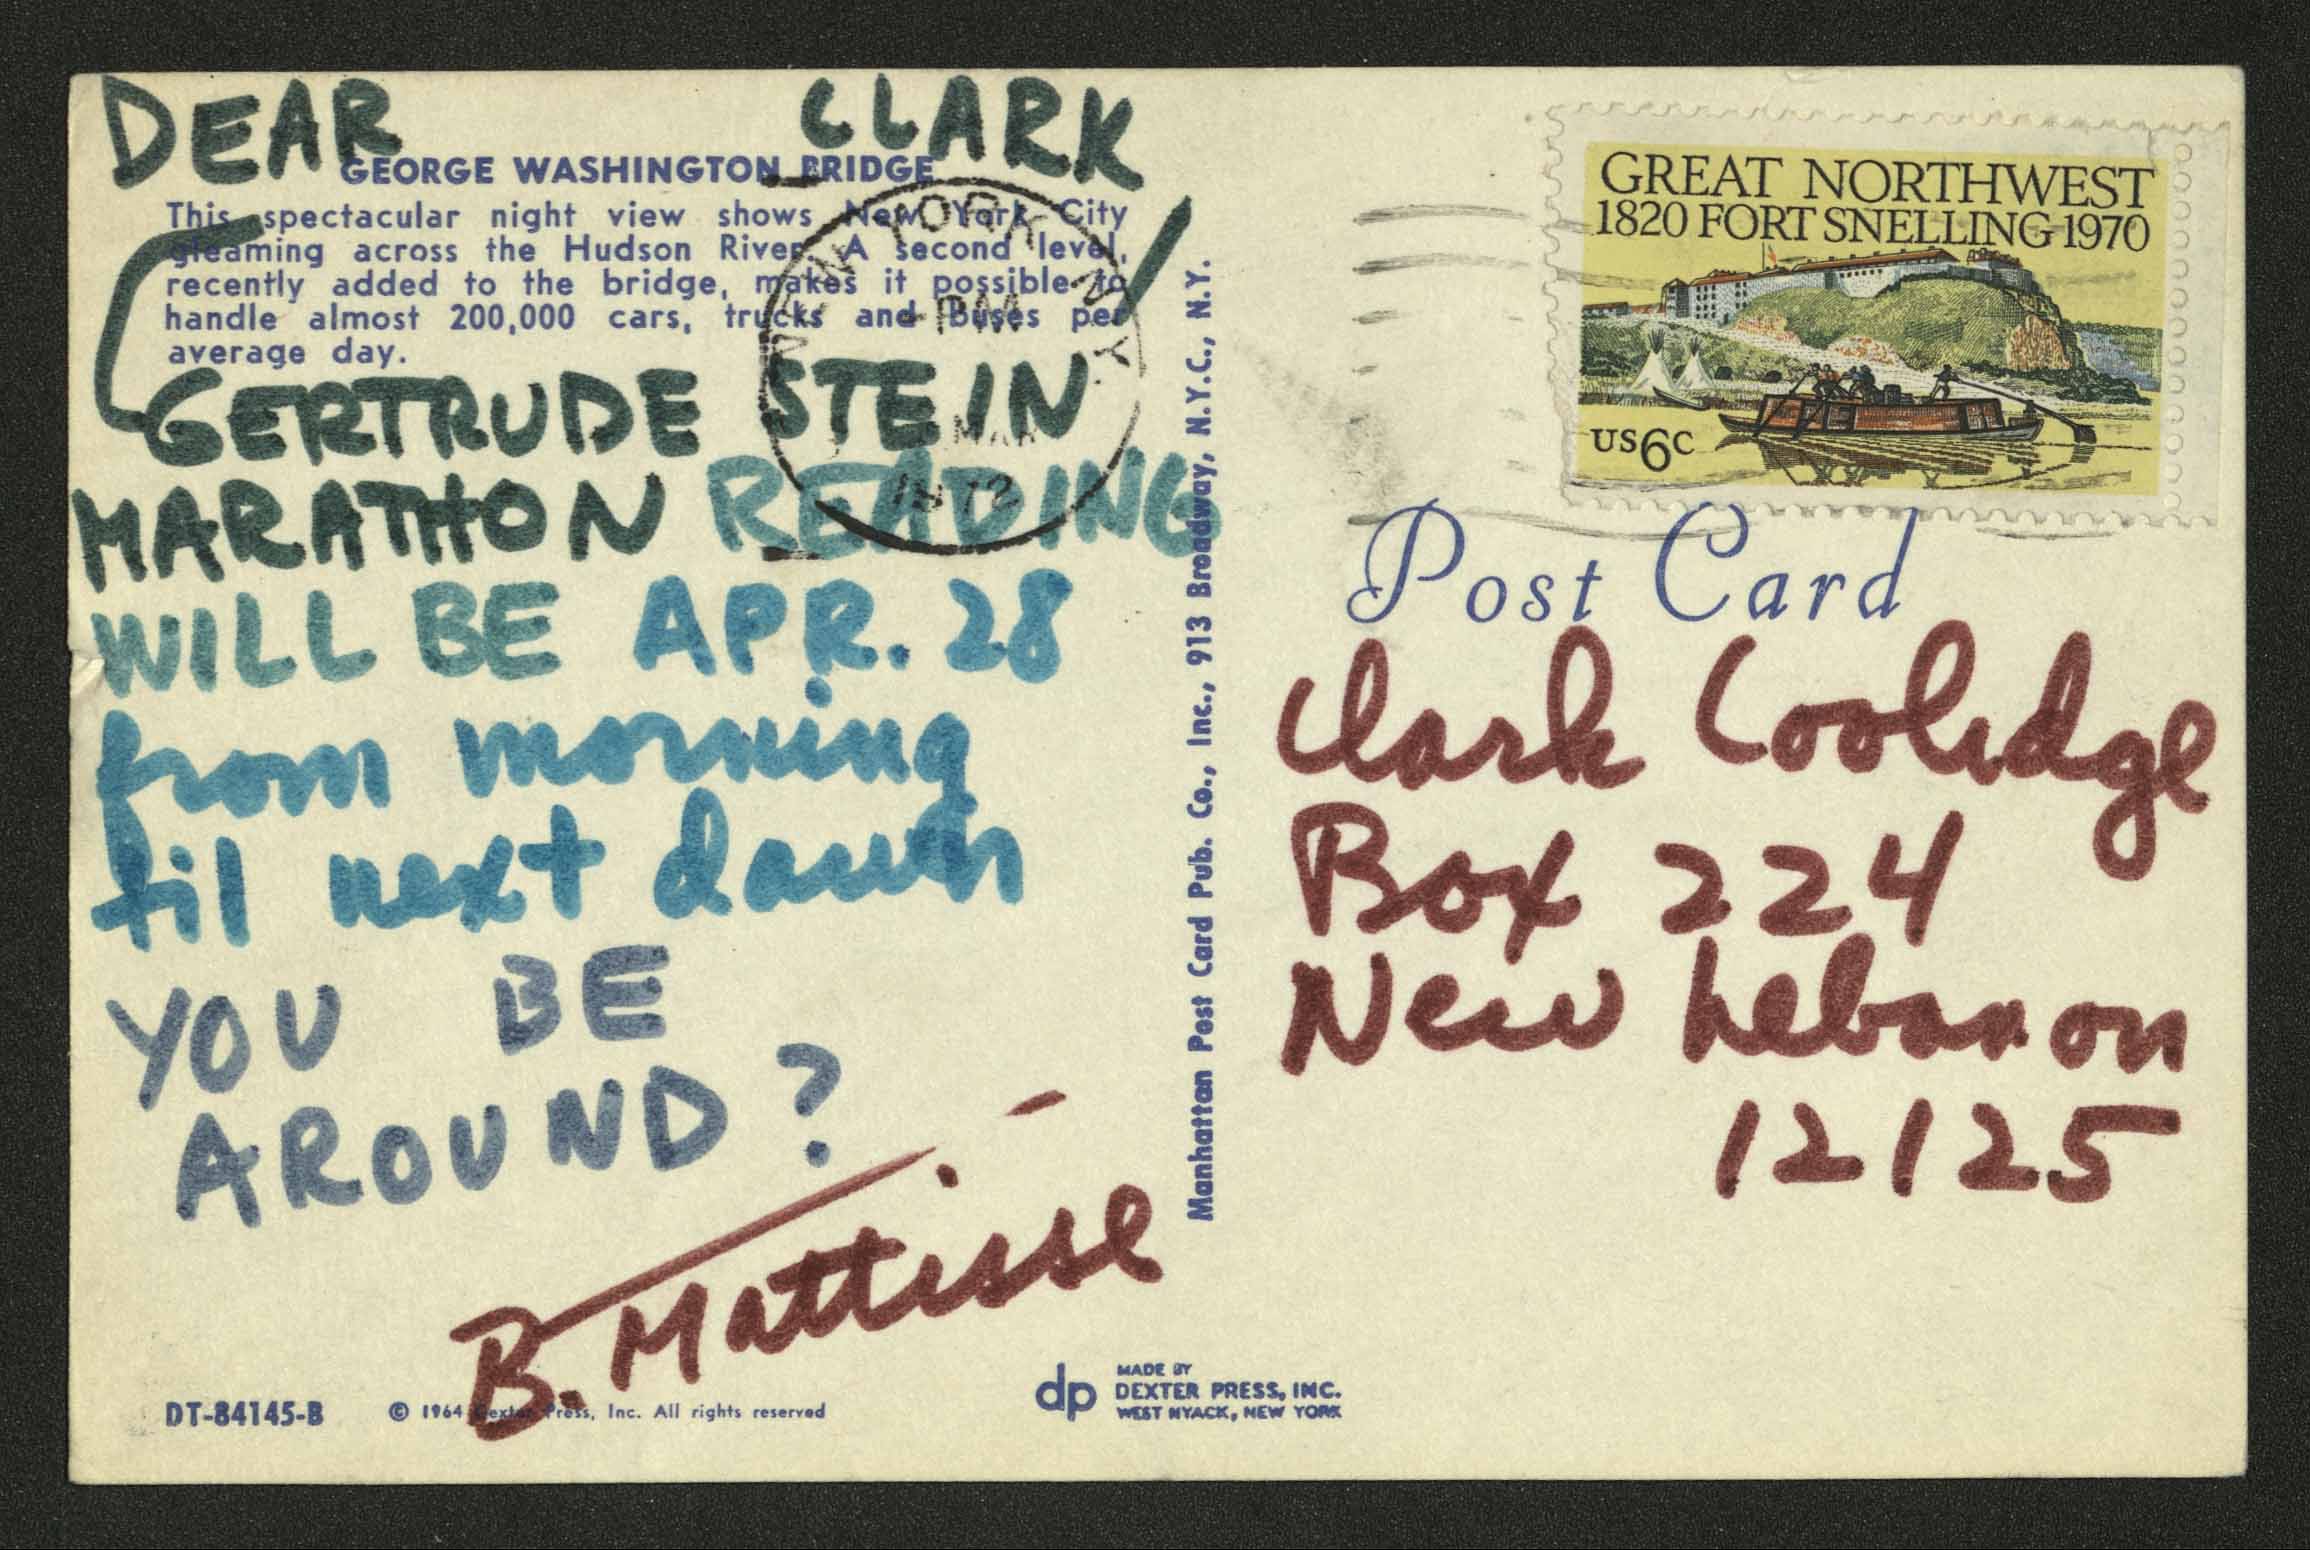 DEAR CLARK
GEORGE WASHINGTON BRIDGE
This spectacular night view shows New York City
gleaming across the Hudson River. A second level,
recently added to the bridge, makes it possible to
handle almost 200,000 cars, trucks and buses per
average day.
GERTRUDE STEIN
MARATHON READING
WILL BE APR. 28
from morning
til next dawn
YOU BE
AROUND?
B. Mattisse
DT-84145-B
© 1964 Dexter Press, Inc. All rights reserved
dp
MADE BY
DEXTER PRESS, INC.
WEST NYACK, NEW YORK
NEW YORK N.Y.
PM
MAR
1972
Manhattan Post Card Pub. Co., Inc., 913 Broadway, N.Y.C., N.Y.
GREAT NORTHWEST
1820 FORT SNELLING 1970
US6c
Post Card
Clark Coolidge
Box 224
New Lebanon
12125